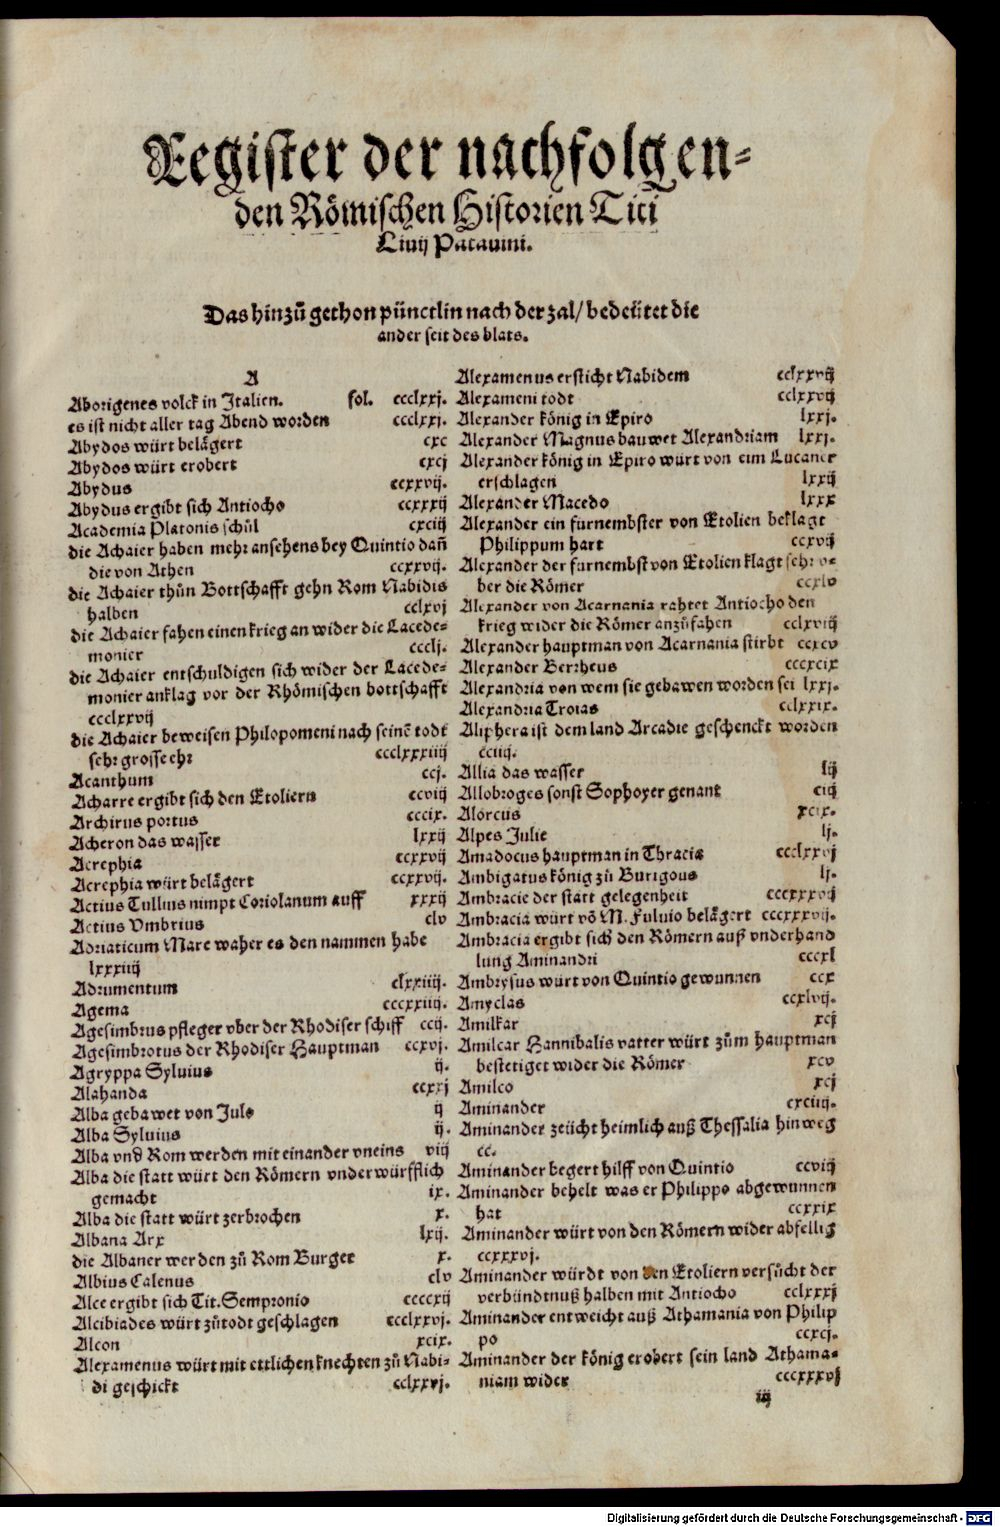 Register der nachfolgen-
den Römischen Historien Titi
Livij Patavini.
Das hinzů gethon pünctlin nach der zal/ bedeütet die
ander seit des blats.
A
Aborigenes volck in Italien. fol. ccclxxj.
es ist nicht aller tag Abend worden ccclxxj.
Abydos würt belägert cxc
Abydos würt erobert cxcj
Abydus ccxxvij.
Abydus ergibt sich Antiocho ccxxxij
Academia Platonis schůl cxciij
die Achaier haben mehr ansehens bey Quintio dañ
die von Athen ccxxvij.
die Achaier thůn Bottschafft gehn Rom Nabidis
halben cclxvj
die Achaier fahen einen krieg an wider die Lacede-
monier ccclj.
die Achaier entschuldigen sich wider der Lacede-
monier anklag vor der Rhömischen bottschafft
ccclxxvij
die Achaier beweisen Philopomeni nach seinē todt
sehr grosse ehr ccclxxxiiij
Acanthum ccj.
Acharre ergibt sich den Etoliern ccviij
Archirus portus cccix.
Acheron das wasser lxxij
Acrephia ccxxvij
Acrephia würt belägert ccxxvij.
Actius Tullius nimpt Coriolanum auff xxxij
Actius Vmbrius clv
Adriaticum Mare waher es den nammen habe
lxxxiiij
Adrumentum clxxiiij.
Agema cccxxiiij.
Agesimbrus pfleger vber der Rhodiser schiff ccij.
Agesimbrotus der Rhodiser Hauptman ccxvj.
Agryppa Sylvius ij.
Alahanda ccxxj
Alba gebawet von Julo ij
Alba Sylvius ij.
Alba vnd Rom werden mit einander vneins viij
Alba die statt würt den Römern vnderwürfflich
gemacht ix.
Alba die statt würt zerbrochen x.
Albana Arx lxij.
die Albaner werden zů Rom Burger x.
Albius Calenus clv
Alce ergibt sich Tit. Sempronio ccccxij
Alcibiades würt zůtodt geschlagen ccclxxvj.
Alcon xcix.
Alexamenus würt mit ettlichen knechten zů Nabi-
di geschickt cclxxvj.
Alexamenus ersticht Nabidem cclxxvij
Alexameni todt cclxxvij
Alexander könig in Epiro lxxj.
Alexander Magnus bauwet Alexandriam lxxj.
Alexander könig in Epiro würt von eim Lucaner
erschlagen lxxij
Alexander Macedo lxxx
Alexander ein fürnembster von Etolien beklagt
Philippum hart ccxvij
Alexander der fürnembst von Etolien klagt sehr v-
ber die Römer ccxlv
Alexander von Acarnania rahtet Antiocho den
krieg wider die Römer anzůfahen cclxviij
Alexander hauptman von Acarnania stirbt ccxcv
Alexander Berrheus cccxcix
Alexandria von wem sie gebawen worden sei lxxj.
Alexandria Troias cclxxix.
Aliphera ist dem land Arcadie geschenckt worden
cciij.
Allia das wasser lij
Allobroges sonst Sophoyer genant ciij
Alorcus xcix.
Alpes Julie lj.
Amadocus hauptman in Thracia ccclxxvj
Ambigatus könig zů Burigous lj.
Ambracie der statt gelegenheit cccxxxvij
Ambracia würt vō M. Fuluio belägert cccxxxvij.
Ambracia ergibt sich den Römern auß vnderhand
lung Aminandri cccxl
Ambrysus würt von Quintio gewunnen ccx
Amyclas ccxlvij.
Amilkar xcj
Amilcar Hannibalis vatter würt zům hauptman
bestetiget wider die Römer xcv
Amilco xcj
Aminander cxciiij.
Aminander zeücht heimlich auß Thessalia hinweg
cc.
Aminander begert hilff von Quintio ccviij
Aminander behelt was er Philippo abgewunnen
hat ccxxix
Aminander würt von den Römern wider abfellig
ccxxxvj.
Aminander würdt von den Etoliern versůcht der
verbündtnuß halben mit Antiocho cclxxxj
Aminander entweicht auß Athamania von Philip
po ccxcj.
Aminander der könig erobert sein land Athama-
niam wider cccxxxvj
iij
Digitalisierung gefördert durch die Deutsche Forschungsgemeinschaft - DFG